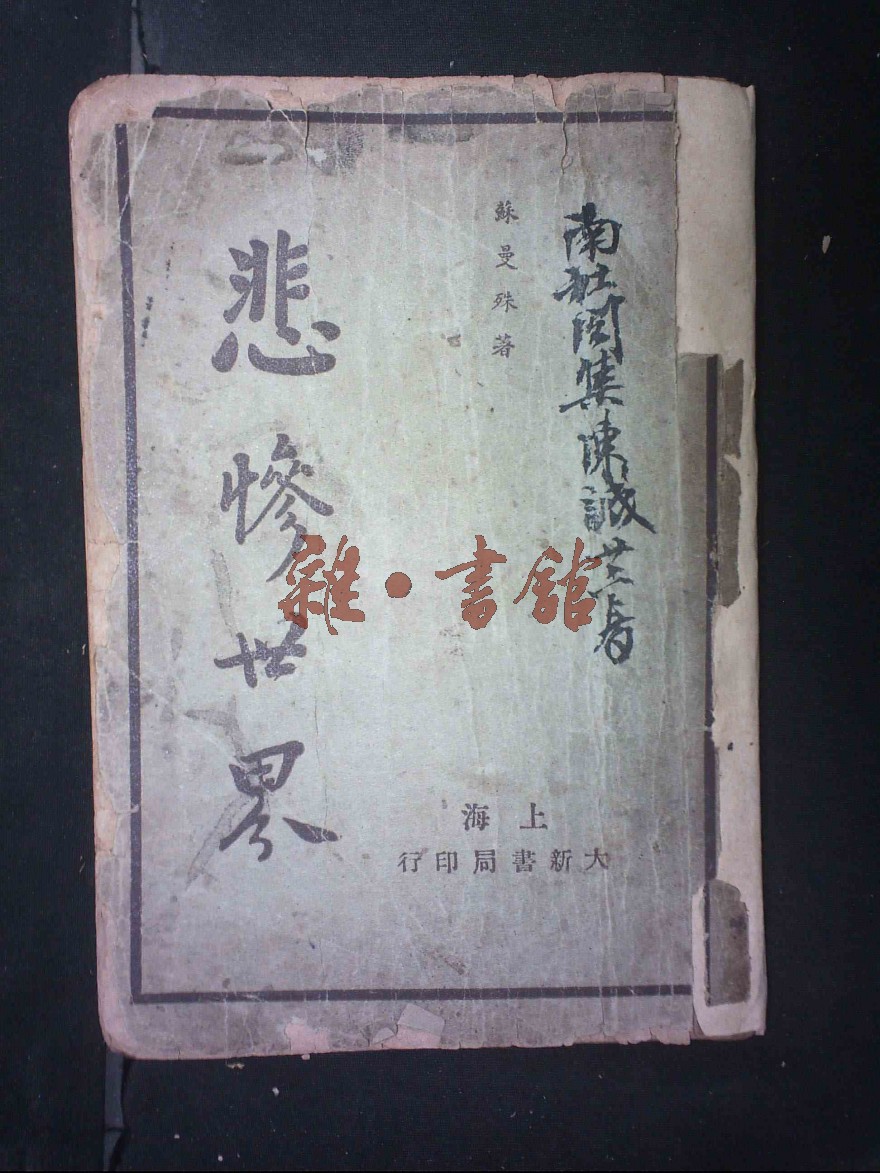 南社 集陳誠
蘇曼殊著
悲慘世界
雜·書館
上海
大新書局印行